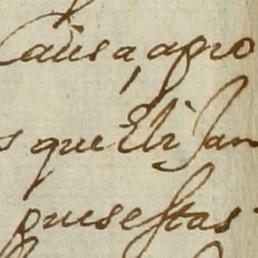 Causa, apro
s que Eli Jan
pues estas